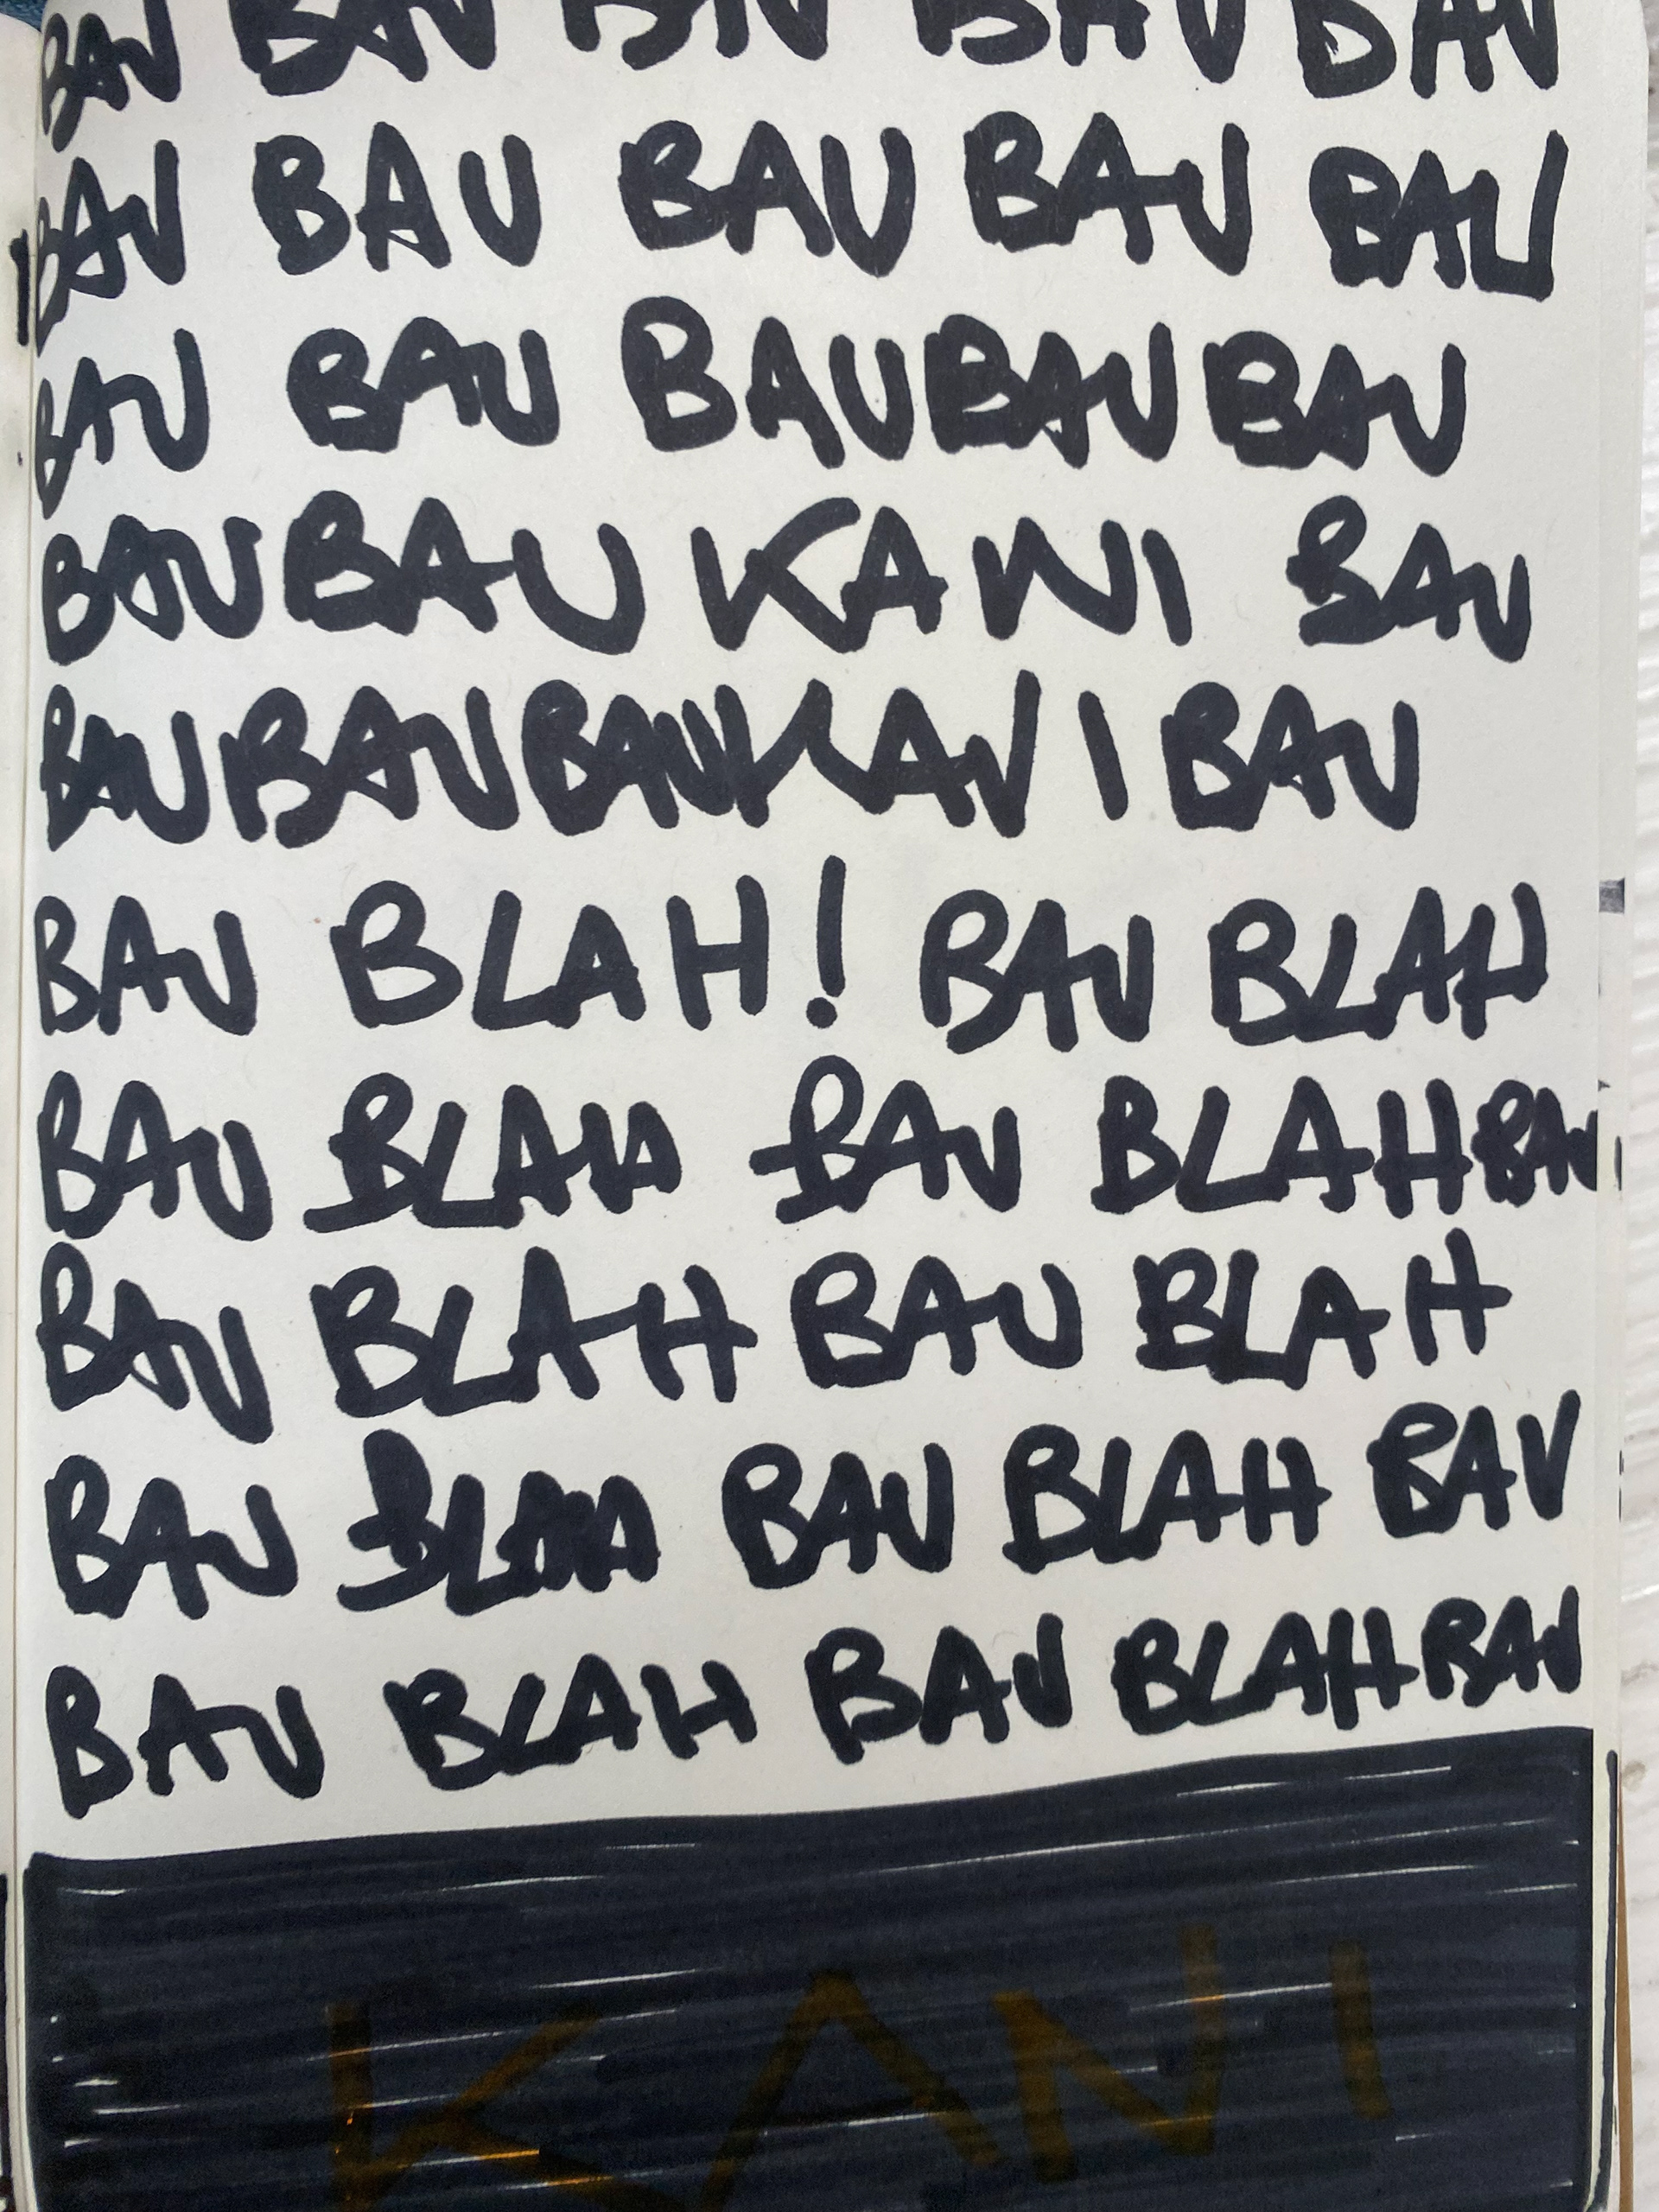 BAU BAU BAU BAU BAU
BAU BAU BAU BAU BAU
BAU BAU BAUBAU BAU
BAUBAU KANI BAU
BAUBAUBAUKANI BAU
BAU BLAH! BAU BLAH
BAU BLAH BAU BLAHBAU
BAU BLAH BAU BLAH
BAU BLAH BAU BLAH BAU
BAU BLAH BAU BLAHBAU
KANI